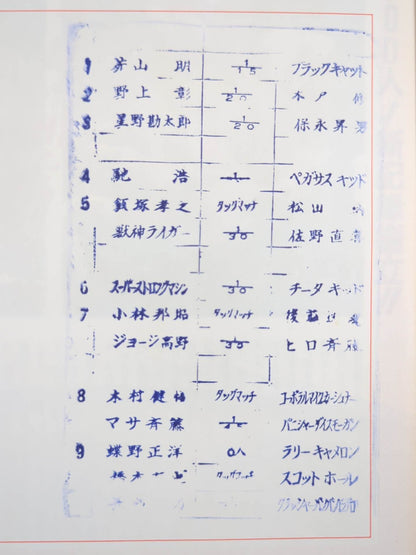 1 山 明 1/15 ブラックキャット
2 野上 彰 1/20 木戸 修
3 星野勘太郎 1/20 保永昇男
4 馳 浩 1 ペガサスキッド
5 飯塚孝之 タッグマッチ 松
獣神ライガー 1/30 佐野直喜
6 スーパーストロングマシン 1/30 チータキッド
7 小林邦昭 タッグマッチ 後藤
ジョージ高野 1/30 ヒロ斉藤
8 木村健悟 タッグマッチ コーポラルマイクカーシュナー
マサ斉藤 パニシャーダイスモーガン
9 蝶野正洋 人 ラリーキャメロン
橋本 タッグマッチ スコットホール
クラッシャー